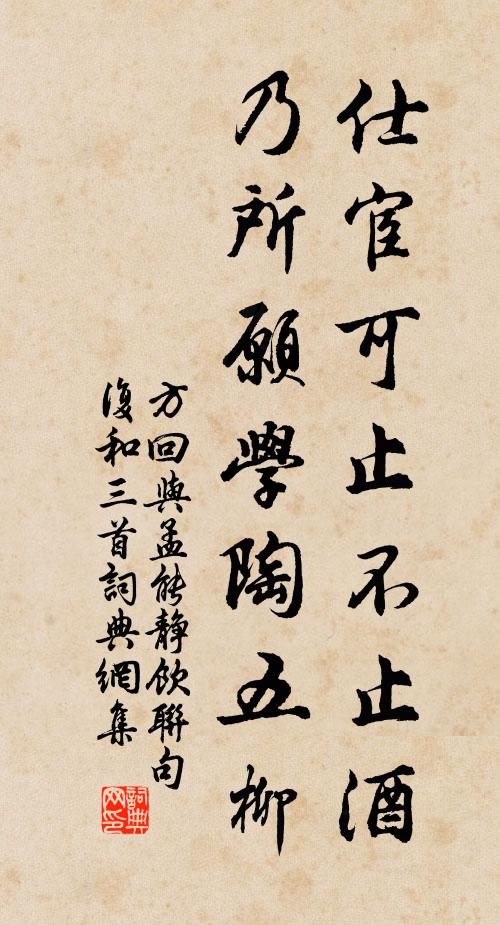 仕宦可止不止酒
乃所願學陶五柳
方回與孟能靜飲聯句
復和三首詞典網集
詞典網印